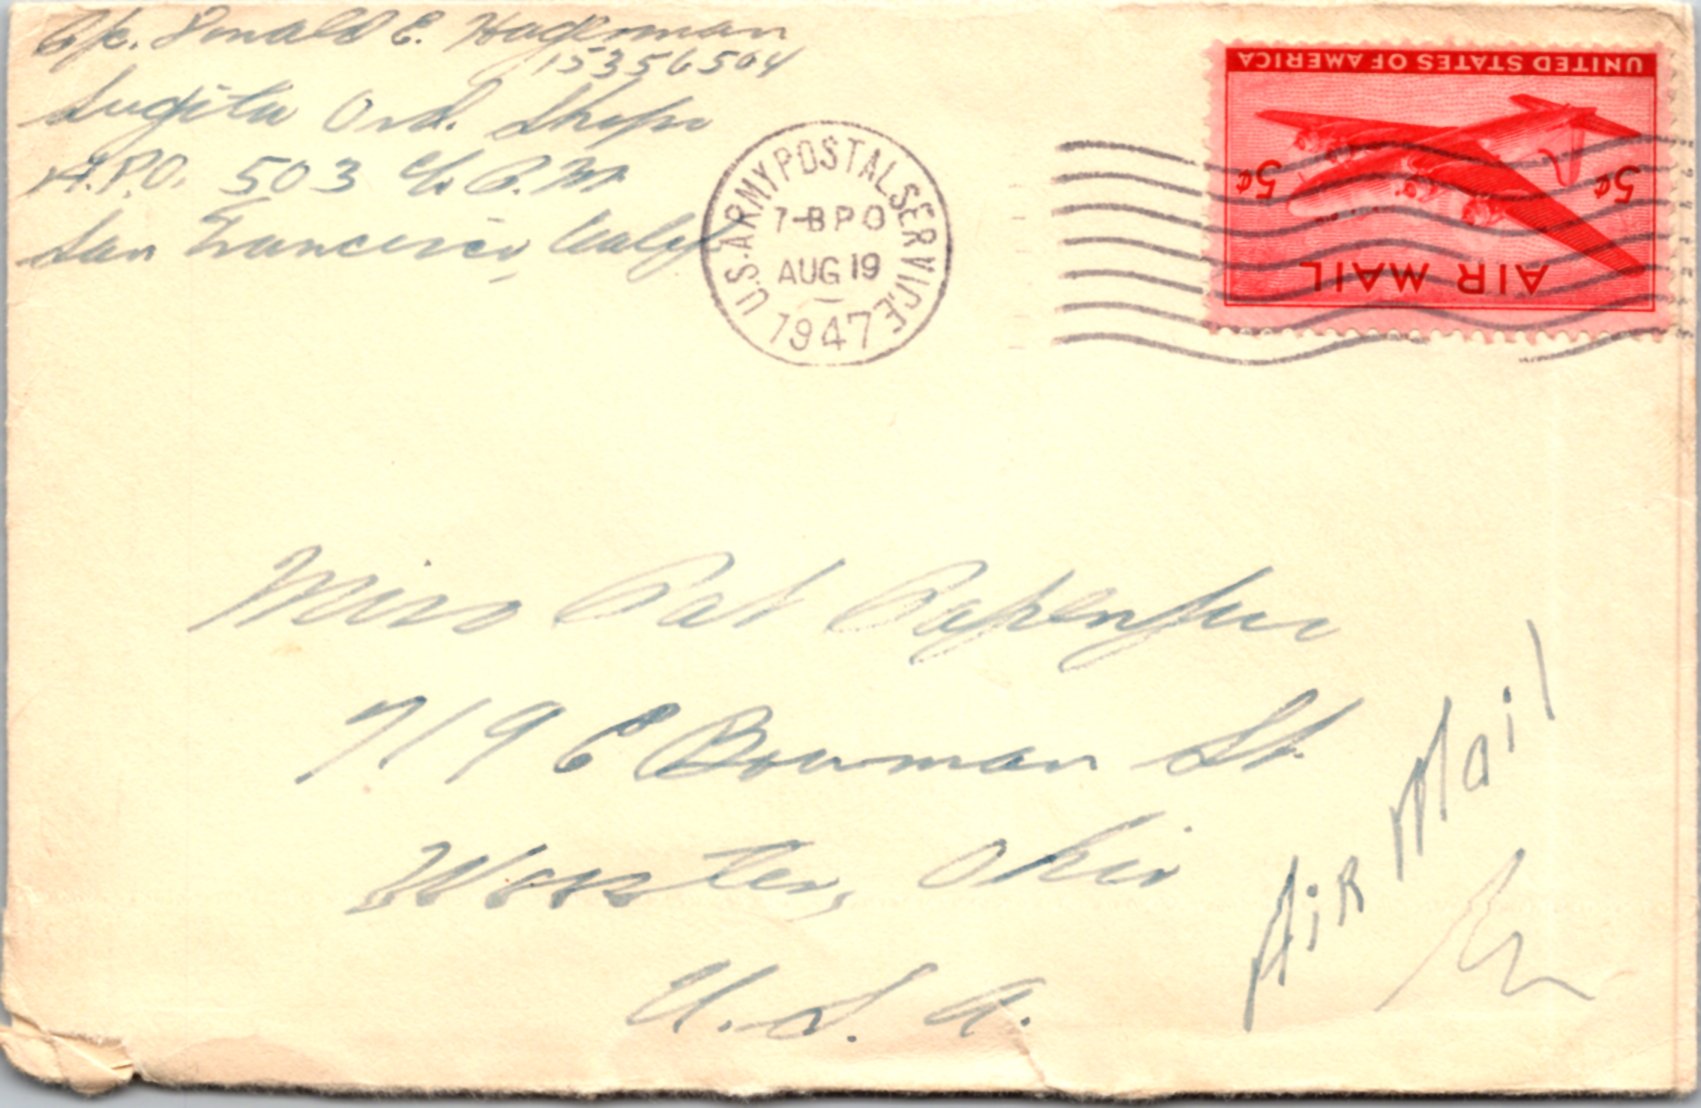 Cpl. Donald E. Hagerman
15356504
Sugita Ord. Shops
A.P.O. 503 c/o P.M.
San Francisco, Calif
U.S. ARMY POSTAL SERVICE
7-BPO
AUG 19
1947
UNITED STATES OF AMERICA
5¢ 5¢
AIR MAIL
Miss Pat Papenfus
719 E Bowman St.
Wooster, Ohio
U.S.A.
Air Mail